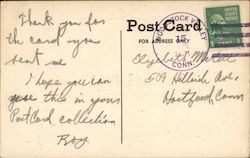 Thank you for
the card you
sent me
I hope you can
use this in yours
PostCard collection
Roy
Post Card
FOR ADDRESS ONLY
VALLEY
CONN.
Elizabeth
509 Hillside Ave.
Hartford Conn
1 CENT 1